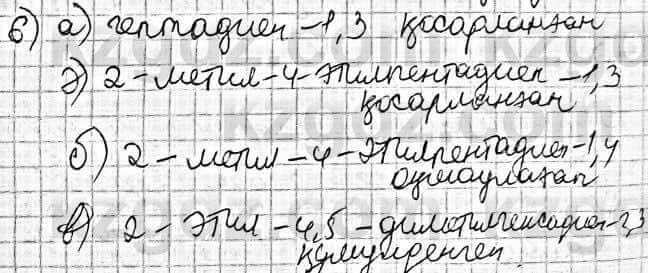 б) а) гептадиен -1,3 қосарланған
ә) 2-метил-4-этилпентадиен -1,3
қосарланған
б) 2 - метил - 4 - этилпентадиен-1,4
оқшауланған
в) 2 - этил - 4,5 - диметилгексадиен-2,3
кумулирленген